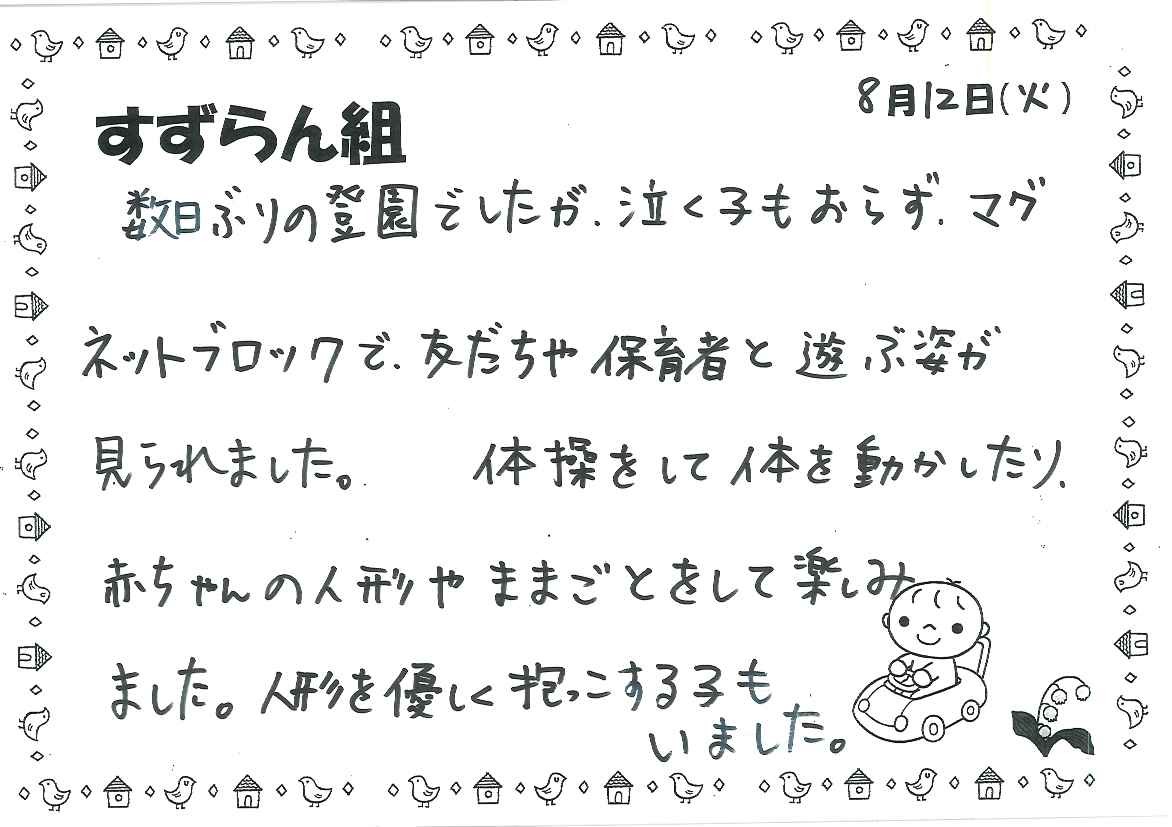 8月12日(火)
すずらん組
数日ぶりの登園でしたが、泣く子もおらず、マグ
ネットブロックで、友だちや保育者と遊ぶ姿が
見られました。 体操をして体を動かしたり、
赤ちゃんの人形やままごとをして楽しみ
ました。人形を優しく抱っこする子も
いました。